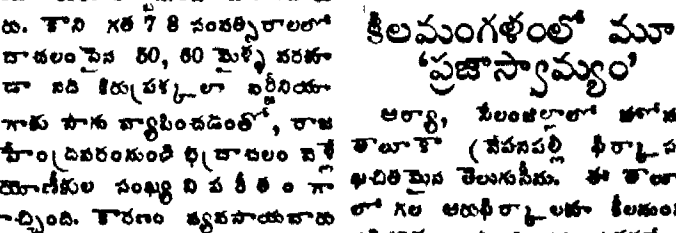 రు. కాని గత 7 8 సంవత్సరాలలో
దాచలం పైన 50, 60 మైళ్ళ వరకూ
డా నది కిరు ప్రక్కలా వర్జీనియా
గాకు సాగు వ్యాపించడంతో, రాజ
హేంద్రవరంనుంచి భద్రాచలం వెళ్లే
యాణీకుల సంఖ్య విపరీతంగా
చ్చింది. కారణం వ్యవసాయదారు
కీలమంగళంలో మూ
'ప్రజాస్వామ్యం'
ఆర్యా, సేలంజిల్లాలో హోసు
తాలూకా (వేపనపల్లి ఫిర్కా
ఖచితమైన తెలుగుసీమ. ఈ తాలూ
లో గల ఆరుఫిర్కాలకూ కీలమం